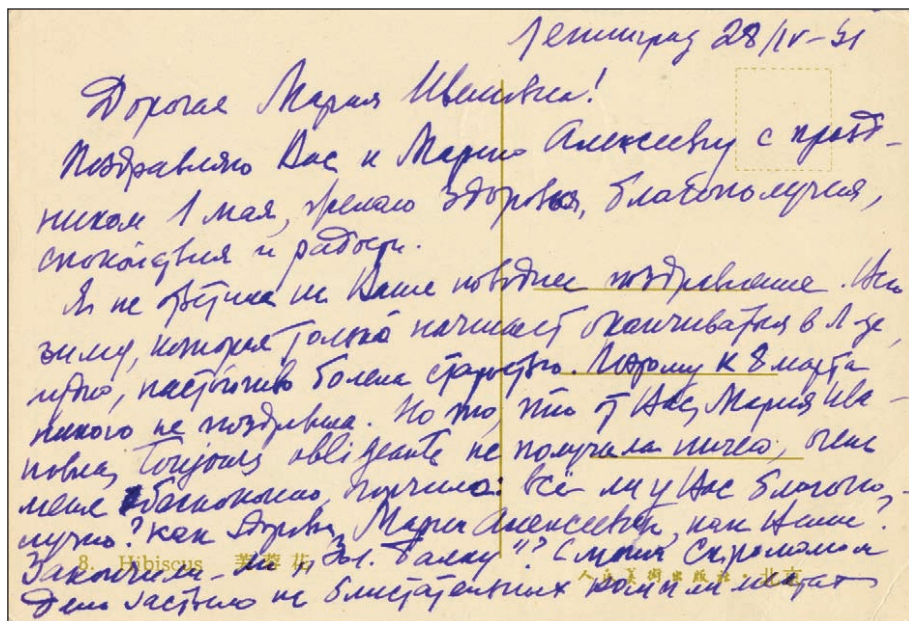 Ленинград 28/IV-51
Дорогая Мария Ивановна!
Поздравляю Вас и Марию Алексеевну с празд-
ником 1 мая, желаю здоровья, благополучия,
спокойствия и радости.
Я не ответила на Ваше новогоднее поздравление. Всю
зиму, которая только начинает оканчиваться в Л-де,
нудно, настойчиво болела старостью. Поэтому к 8 марта
никого не поздравила. Но то, что от Вас, Мария Ива-
новна, toujours obligeante не получала ничего, очень
меня обеспокоило, огорчило: всё ли у Вас благопо-
лучно? Как здоровье Марии Алексеевны, как Ваше?
8. Hibiscus 芙蓉花
Закончили ли „Зол. балку"? С моим скромным
人民美術出版社 北京
застыло на блистательных